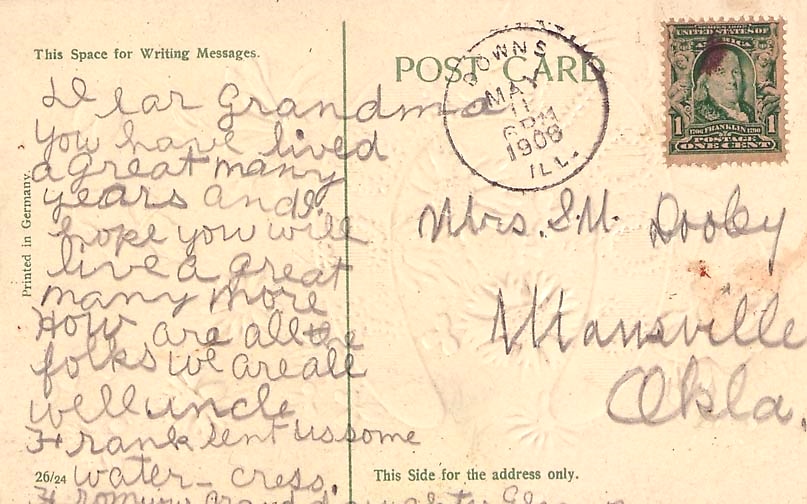 This Space for Writing Messages.
POST CARD
DOWNS
MAY
11
6 PM
1908
ILL.
UNITED STATES OF
AMERICA
1 1706 FRANKLIN 1790 1
POSTAGE
ONE CENT
Printed in Germany.
Dear Grandma
you have lived
a great many
years and I
hope you will
live a great
many more
How are all the
folks we are all
well uncle
Frank sent us some
water-cress.
From your granddaughter
Mrs. S.M. Dooley
Mansville
Okla.
26/24
This Side for the address only.